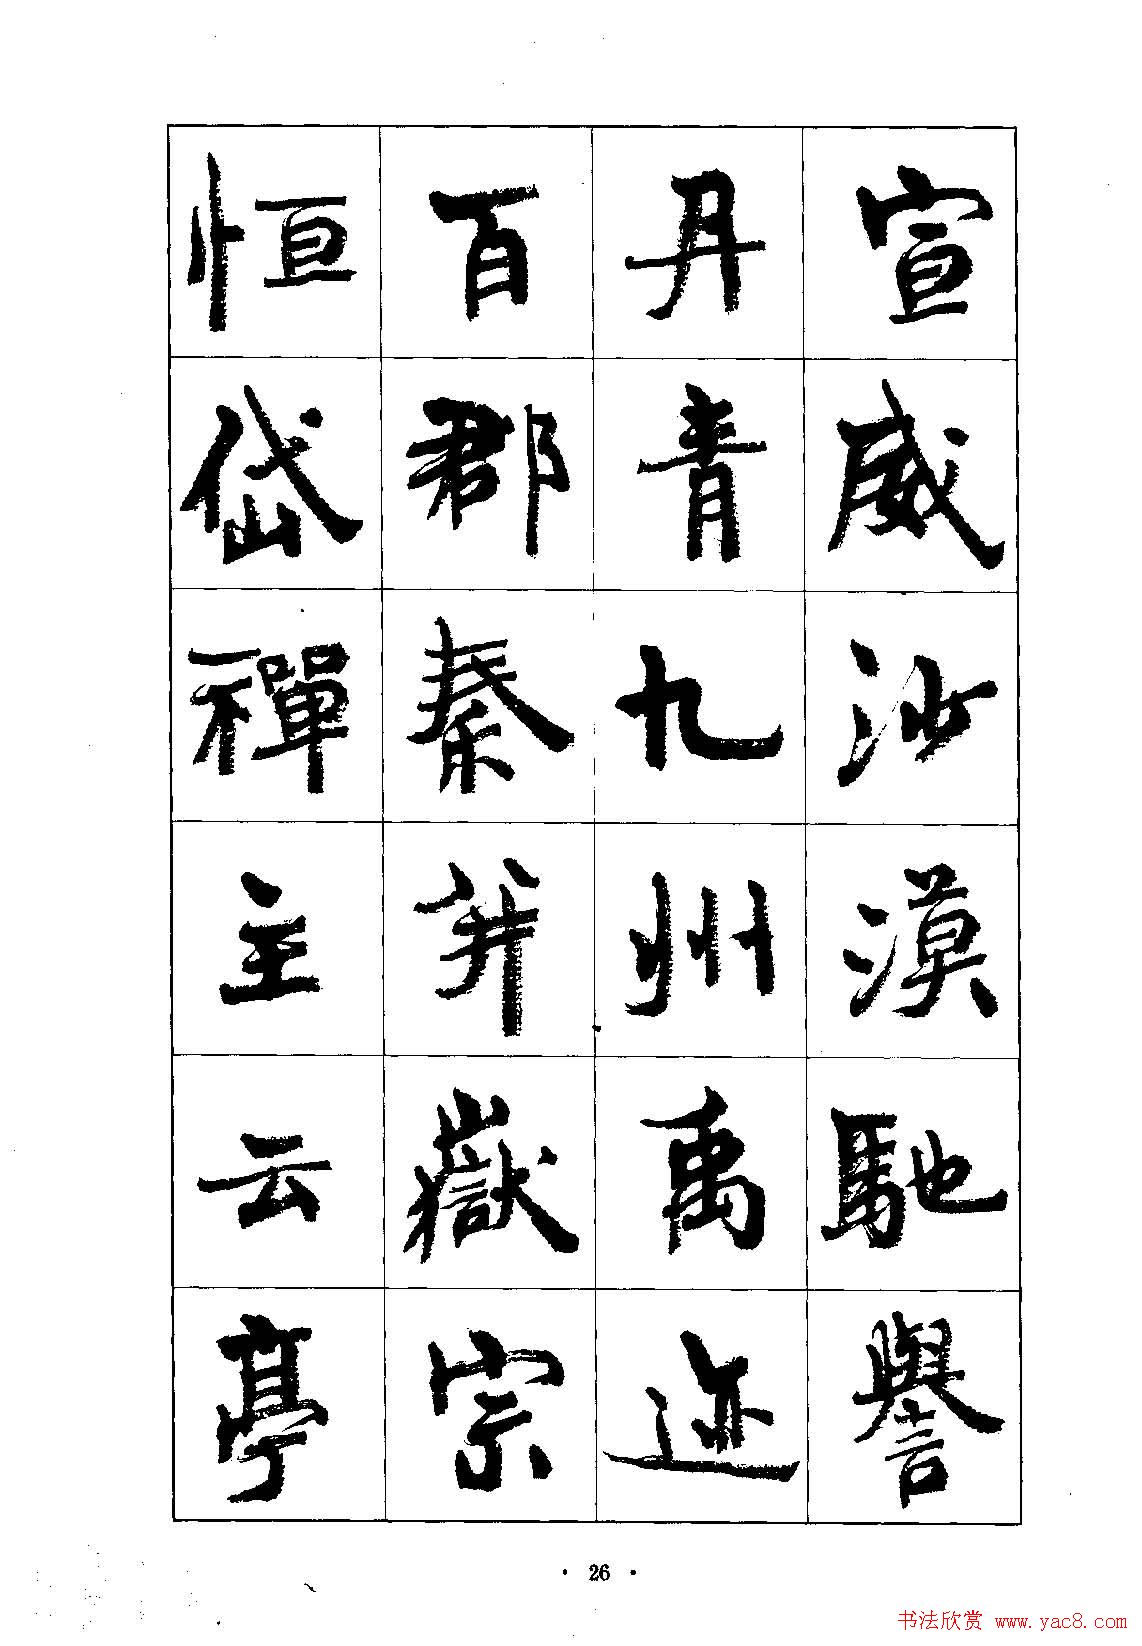 宣威沙漠馳譽
丹青九州禹迹
百郡秦并嶽宗
恒岱禪主云亭
· 26 ·
书法欣赏 www.yac8.com